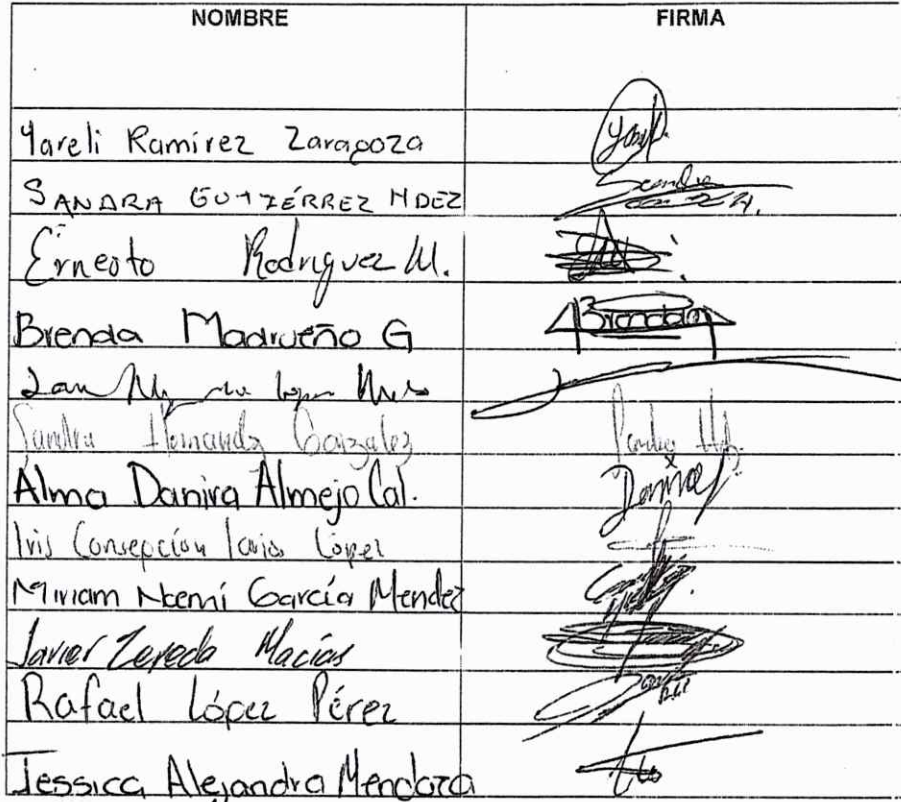 NOMBRE FIRMA
Yareli Ramírez Zaragoza
SANDRA GUTIÉRREZ HDEZ Sandra
Ernesto Rodriguez M.
Brenda Madrueño G Brenda
Sandra Hernandz Gonzalez Sandra Hdz.
Alma Danira Almejo Cal. Danira
Iris Consepción López
Miriam Noemí García Mendez
Javier Zepeda Macías
Rafael López Pérez
Jessica Alejandra Mendoza